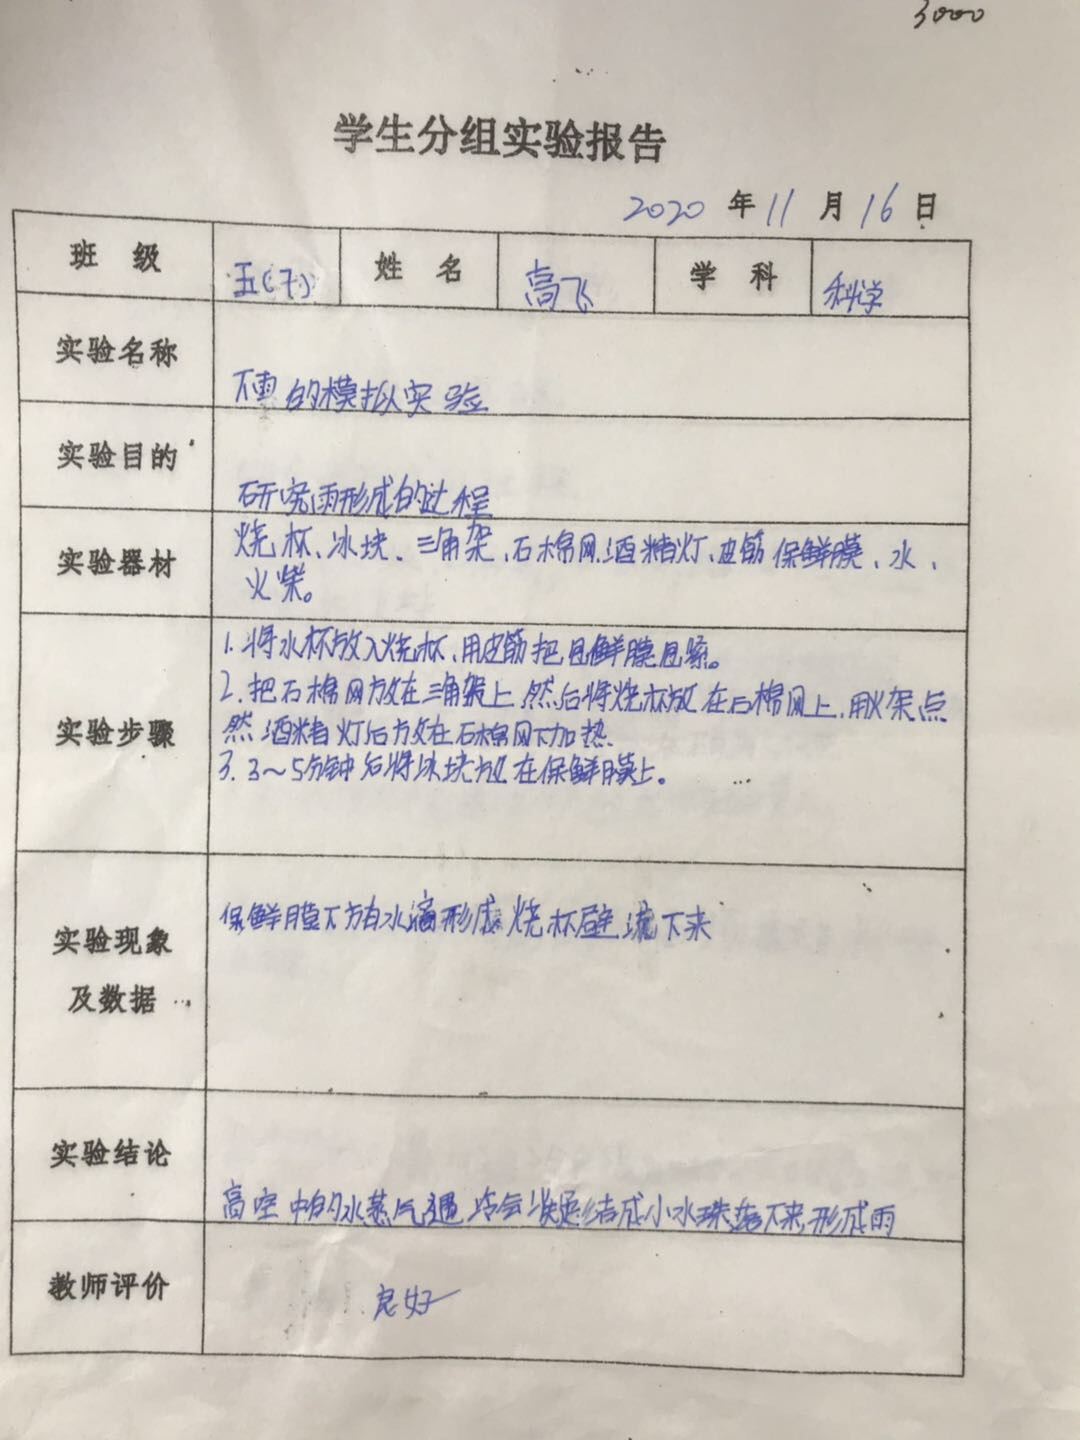 3000
学生分组实验报告
2020 年 11 月 16 日
班 级 五(7) 姓 名 高飞 学 科 科学
实验名称 下雨的模拟实验
实验目的 研究雨形成的过程
实验器材 烧杯、冰块、三角架、石棉网、酒精灯、皮筋 保鲜膜、水、
火柴。
1. 将水杯放入烧杯、用皮筋把 鲜膜 紧。
2. 把石棉网放在三角架上 然后将烧杯放在石棉网上, 用火架点
实验步骤 然酒精灯后放在石棉网下加热.
3. 3~5分钟后将冰块放在保鲜膜上。
保鲜膜下方有水滴形成 烧杯壁流下来
实验现象
及数据
实验结论
高空中的水蒸气遇冷会 凝结成小水珠落下来,形成雨
教师评价 良好